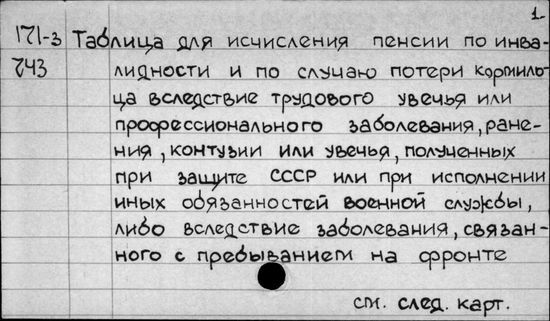 1.
171-3 Таблица для исчисления пенсии по инва-
243 лидности и по случаю потери кормиль-
ца вследствие трудового увечья или
профессионального заболевания, ране-
ния, контузии или увечья, полученных
при защите СССР или при исполнении
иных обязанностей военной службы,
либо вследствие заболевания, связан-
ного с пребыванием на фронте
см. след. карт.